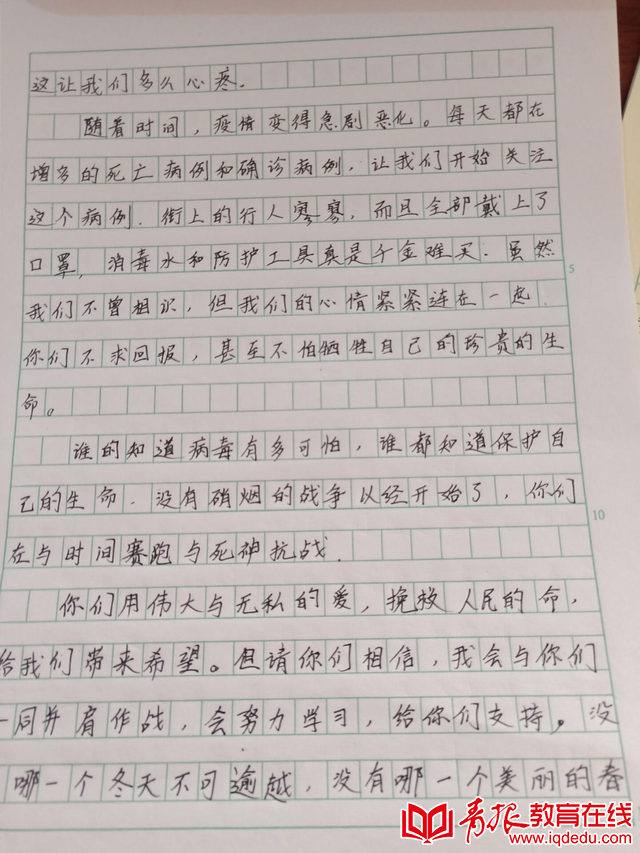 这让我们多么心疼.
随着时间，疫情变得急剧恶化。每天都在
增多的死亡病例和确诊病例，让我们开始关注
这个病例.街上的行人寥寥，而且全部戴上了
口罩，消毒水和防护工具真是千金难买.虽然
我们不曾相识，但我们的心情紧紧连在一起.
你们不求回报，甚至不怕牺牲自己的珍贵的生
命。
谁的知道病毒有多可怕，谁都知道保护自
己的生命.没有硝烟的战争以经开始了，你们
在与时间赛跑与死神抗战.
你们用伟大与无私的爱，挽救人民的命，
给我们带来希望。但请你们相信，我会与你们
一同并肩作战，会努力学习，给你们支持。没
哪一个冬天不可逾越，没有哪一个美丽的春
5
10
青报教育在线
www.iqdedu.com